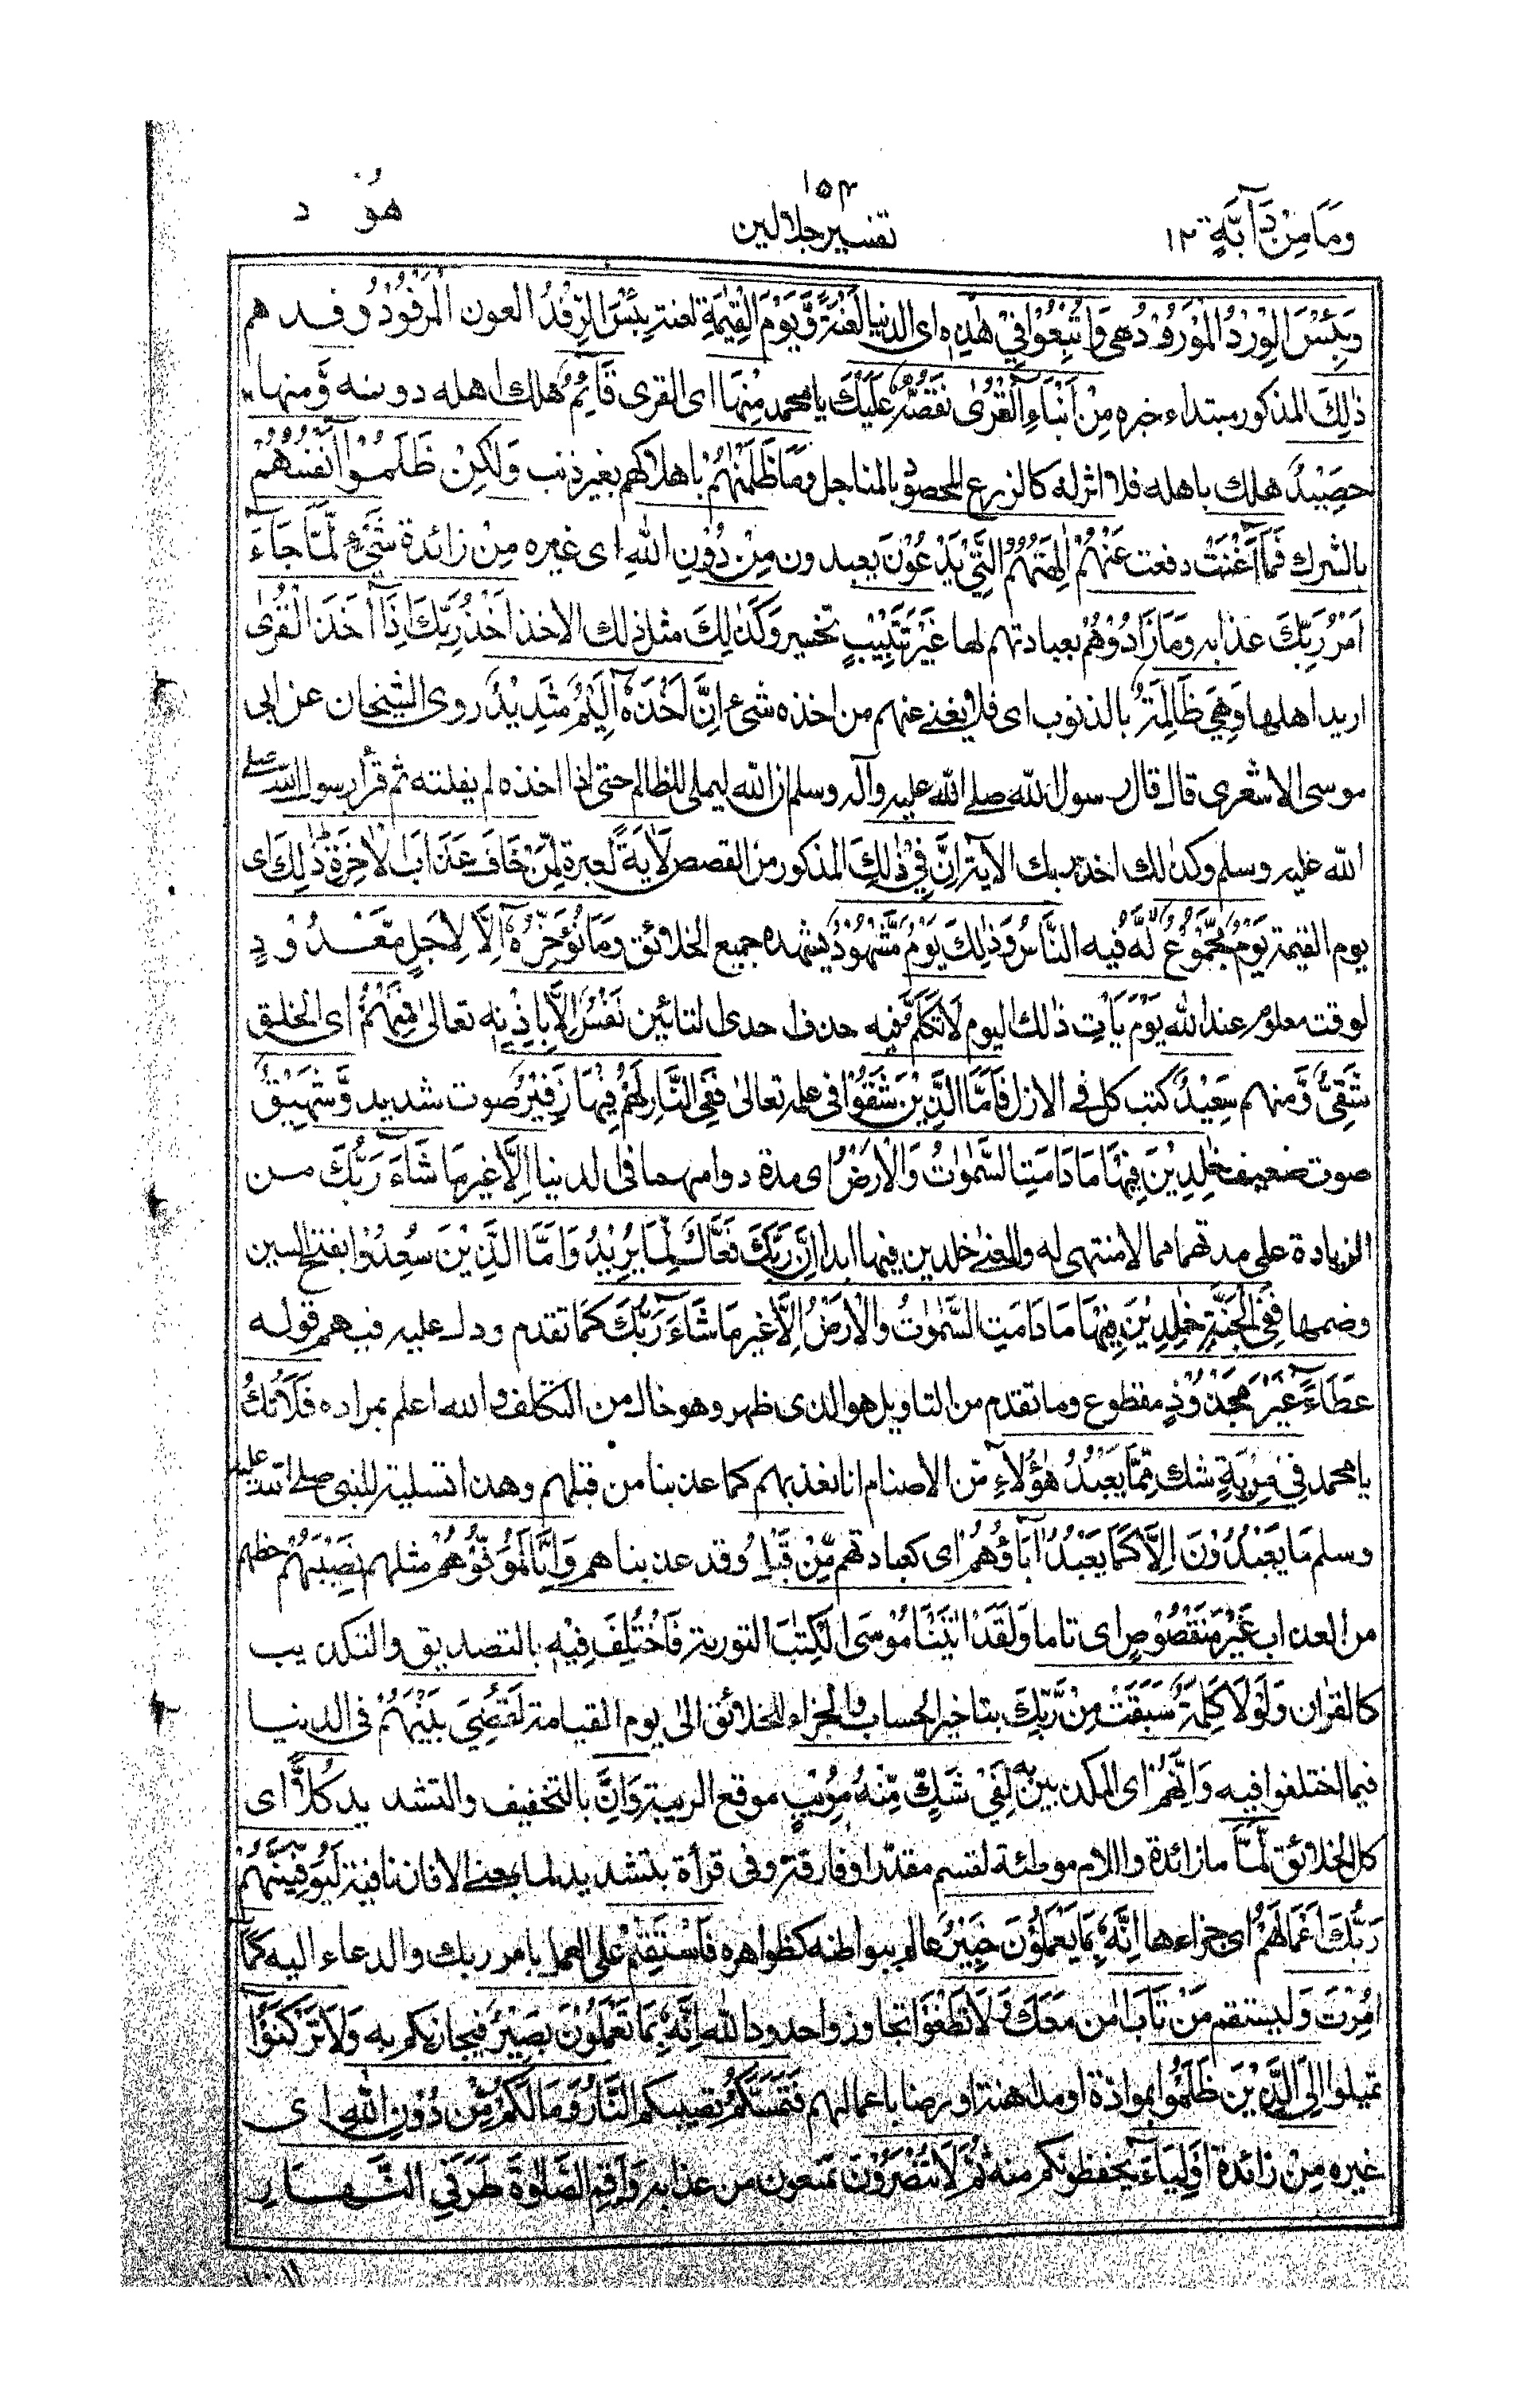 وَمَا مِنْ دَآبَّةٍ ١٢
١٥٣
تفسير جلالين
هُوْد
وَبِئْسَ الْوِرْدُ الْمَوْرُوْدُ هى وَاُتْبِعُوْا فِيْ هٰذِهٖ اى الدنيا لَعْنَةً وَّيَوْمَ الْقِيٰمَةِ لعنة بِئْسَ الرِّفْدُ العون الْمَرْفُوْدُ رفدهم
ذٰلِكَ المذكور مبتداء خبره مِنْ اَنْبَآءِ الْقُرٰى نَقُصُّهٗ عَلَيْكَ يا محمد مِنْهَا اى القرى قَآئِمٌ هلك اهله دونه وَّمنها
حَصِيْدٌ هلك باهله فلا اثر له كالزرع المحصود بالمناجل وَمَا ظَلَمْنٰهُمْ باهلاكهم بغير ذنب وَلٰكِنْ ظَلَمُوْٓا اَنْفُسَهُمْ
بالشرك فَمَآ اَغْنَتْ دفعت عَنْهُمْ اٰلِهَتُهُمُ الَّتِيْ يَدْعُوْنَ يعبدون مِنْ دُوْنِ اللّٰهِ اى غيره مِنْ زائدة شَيْءٍ لَّمَّا جَآءَ
اَمْرُ رَبِّكَ عذابه وَمَا زَادُوْهُمْ بعبادتهم لها غَيْرَ تَتْبِيْبٍ تخسير وَكَذٰلِكَ مثل ذلك الاخذ اَخْذُ رَبِّكَ اِذَآ اَخَذَ الْقُرٰى
اريد اهلها وَهِيَ ظَالِمَةٌ بالذنوب اى فلا يغنى عنهم من اخذه شىء اِنَّ اَخْذَهٗٓ اَلِيْمٌ شَدِيْدٌ روى الشيخان عن ابى
موسى الاشعرى قال قال رسول الله صلى الله عليه وآله وسلم ان الله ليملى للظالم حتى اذا اخذه لم يفلته ثم قرأ رسول الله صلى
الله عليه وسلم وكذلك اخذ ربك الآية اِنَّ فِيْ ذٰلِكَ المذكور من القصص لَاٰيَةً لعبرة لِّمَنْ خَافَ عَذَابَ الْاٰخِرَةِ ذٰلِكَ اى
يوم القيمة يَوْمٌ مَّجْمُوْعٌ لَّهُ فيه النَّاسُ وَذٰلِكَ يَوْمٌ مَّشْهُوْدٌ يشهده جميع الخلائق وَمَا نُؤَخِّرُهٗٓ اِلَّا لِاَجَلٍ مَّعْدُوْدٍ
لوقت معلوم عند الله يَوْمَ يَاْتِ ذلك اليوم لَا تَكَلَّمُ فيه حذف احدى التائين نَفْسٌ اِلَّا بِاِذْنِهٖ تعالى فَمِنْهُمْ اى الخلق
شَقِيٌّ وَّمنهم سَعِيْدٌ كتب كل فى الازل فَاَمَّا الَّذِيْنَ شَقُوْا فى علمه تعالى فَفِي النَّارِ لَهُمْ فِيْهَا زَفِيْرٌ صوت شديد وَّشَهِيْقٌ
صوت ضعيف خٰلِدِيْنَ فِيْهَا مَا دَامَتِ السَّمٰوٰتُ وَالْاَرْضُ اى مدة دوامهما فى الدنيا اِلَّا غير مَا شَآءَ رَبُّكَ من
الزيادة على مدتهما مما لا منتهى له والمعنى خلدين فيها ابدا اِنَّ رَبَّكَ فَعَّالٌ لِّمَا يُرِيْدُ وَاَمَّا الَّذِيْنَ سُعِدُوْا بفتح السين
وضمها فَفِي الْجَنَّةِ خٰلِدِيْنَ فِيْهَا مَا دَامَتِ السَّمٰوٰتُ وَالْاَرْضُ اِلَّا غير مَا شَآءَ رَبُّكَ كما تقدم ودل عليه فيهم قوله
عَطَآءً غَيْرَ مَجْذُوْذٍ مقطوع وما تقدم من التاويل هو الذى ظهر وهو خال من التكلف والله اعلم بمراده فَلَا تَكُ
يا محمد فِيْ مِرْيَةٍ شك مِّمَّا يَعْبُدُ هٰٓؤُلَآءِ من الاصنام انا نعذبهم كما عذبنا من قبلهم وهذا تسلية للنبى صلى الله عليه
وسلم مَا يَعْبُدُوْنَ اِلَّا كَمَا يَعْبُدُ اٰبَآؤُهُمْ اى كعبادتهم مِّنْ قَبْلُ وقد عذبناهم وَاِنَّا لَمُوَفُّوْهُمْ مثلهم نَصِيْبَهُمْ حظهم
من العذاب غَيْرَ مَنْقُوْصٍ اى تاما وَلَقَدْ اٰتَيْنَا مُوْسَى الْكِتٰبَ التورية فَاخْتُلِفَ فِيْهِ بالتصديق والتكذيب
كالقران وَلَوْلَا كَلِمَةٌ سَبَقَتْ مِنْ رَّبِّكَ بتاخير الحساب والجزاء للخلائق الى يوم القيامة لَقُضِيَ بَيْنَهُمْ فى الدنيا
فيما اختلفوا فيه وَاِنَّهُمْ اى المكذبين به لَفِيْ شَكٍّ مِّنْهُ مُرِيْبٍ موقع الريبة وَاِنَّ بالتخفيف والتشديد كُلًّا اى
كل الخلائق لَّمَّا ما زائدة واللام موطئة لقسم مقدر او فارقة وفى قرأة بتشديد لما بمعنى الا فان نافية لَيُوَفِّيَنَّهُمْ
رَبُّكَ اَعْمَالَهُمْ اى جزاءها اِنَّهٗ بِمَا يَعْمَلُوْنَ خَبِيْرٌ عالم ببواطنه كظواهره فَاسْتَقِمْ على العمل بامر ربك والدعاء اليه كَمَآ
اُمِرْتَ وَليستقم مَنْ تَابَ امن مَعَكَ وَلَا تَطْغَوْا تجاوزوا حدود الله اِنَّهٗ بِمَا تَعْمَلُوْنَ بَصِيْرٌ فيجازيكم به وَلَا تَرْكَنُوْٓا
تميلوا اِلَى الَّذِيْنَ ظَلَمُوْا بموادة او مداهنة او رضا باعمالهم فَتَمَسَّكُمُ تصيبكم النَّارُ وَمَا لَكُمْ مِّنْ دُوْنِ اللّٰهِ اى
غيره مِنْ زائدة اَوْلِيَآءَ يحفظونكم منه ثُمَّ لَا تُنْصَرُوْنَ تمنعون من عذابه وَاَقِمِ الصَّلٰوةَ طَرَفَيِ النَّهَارِ